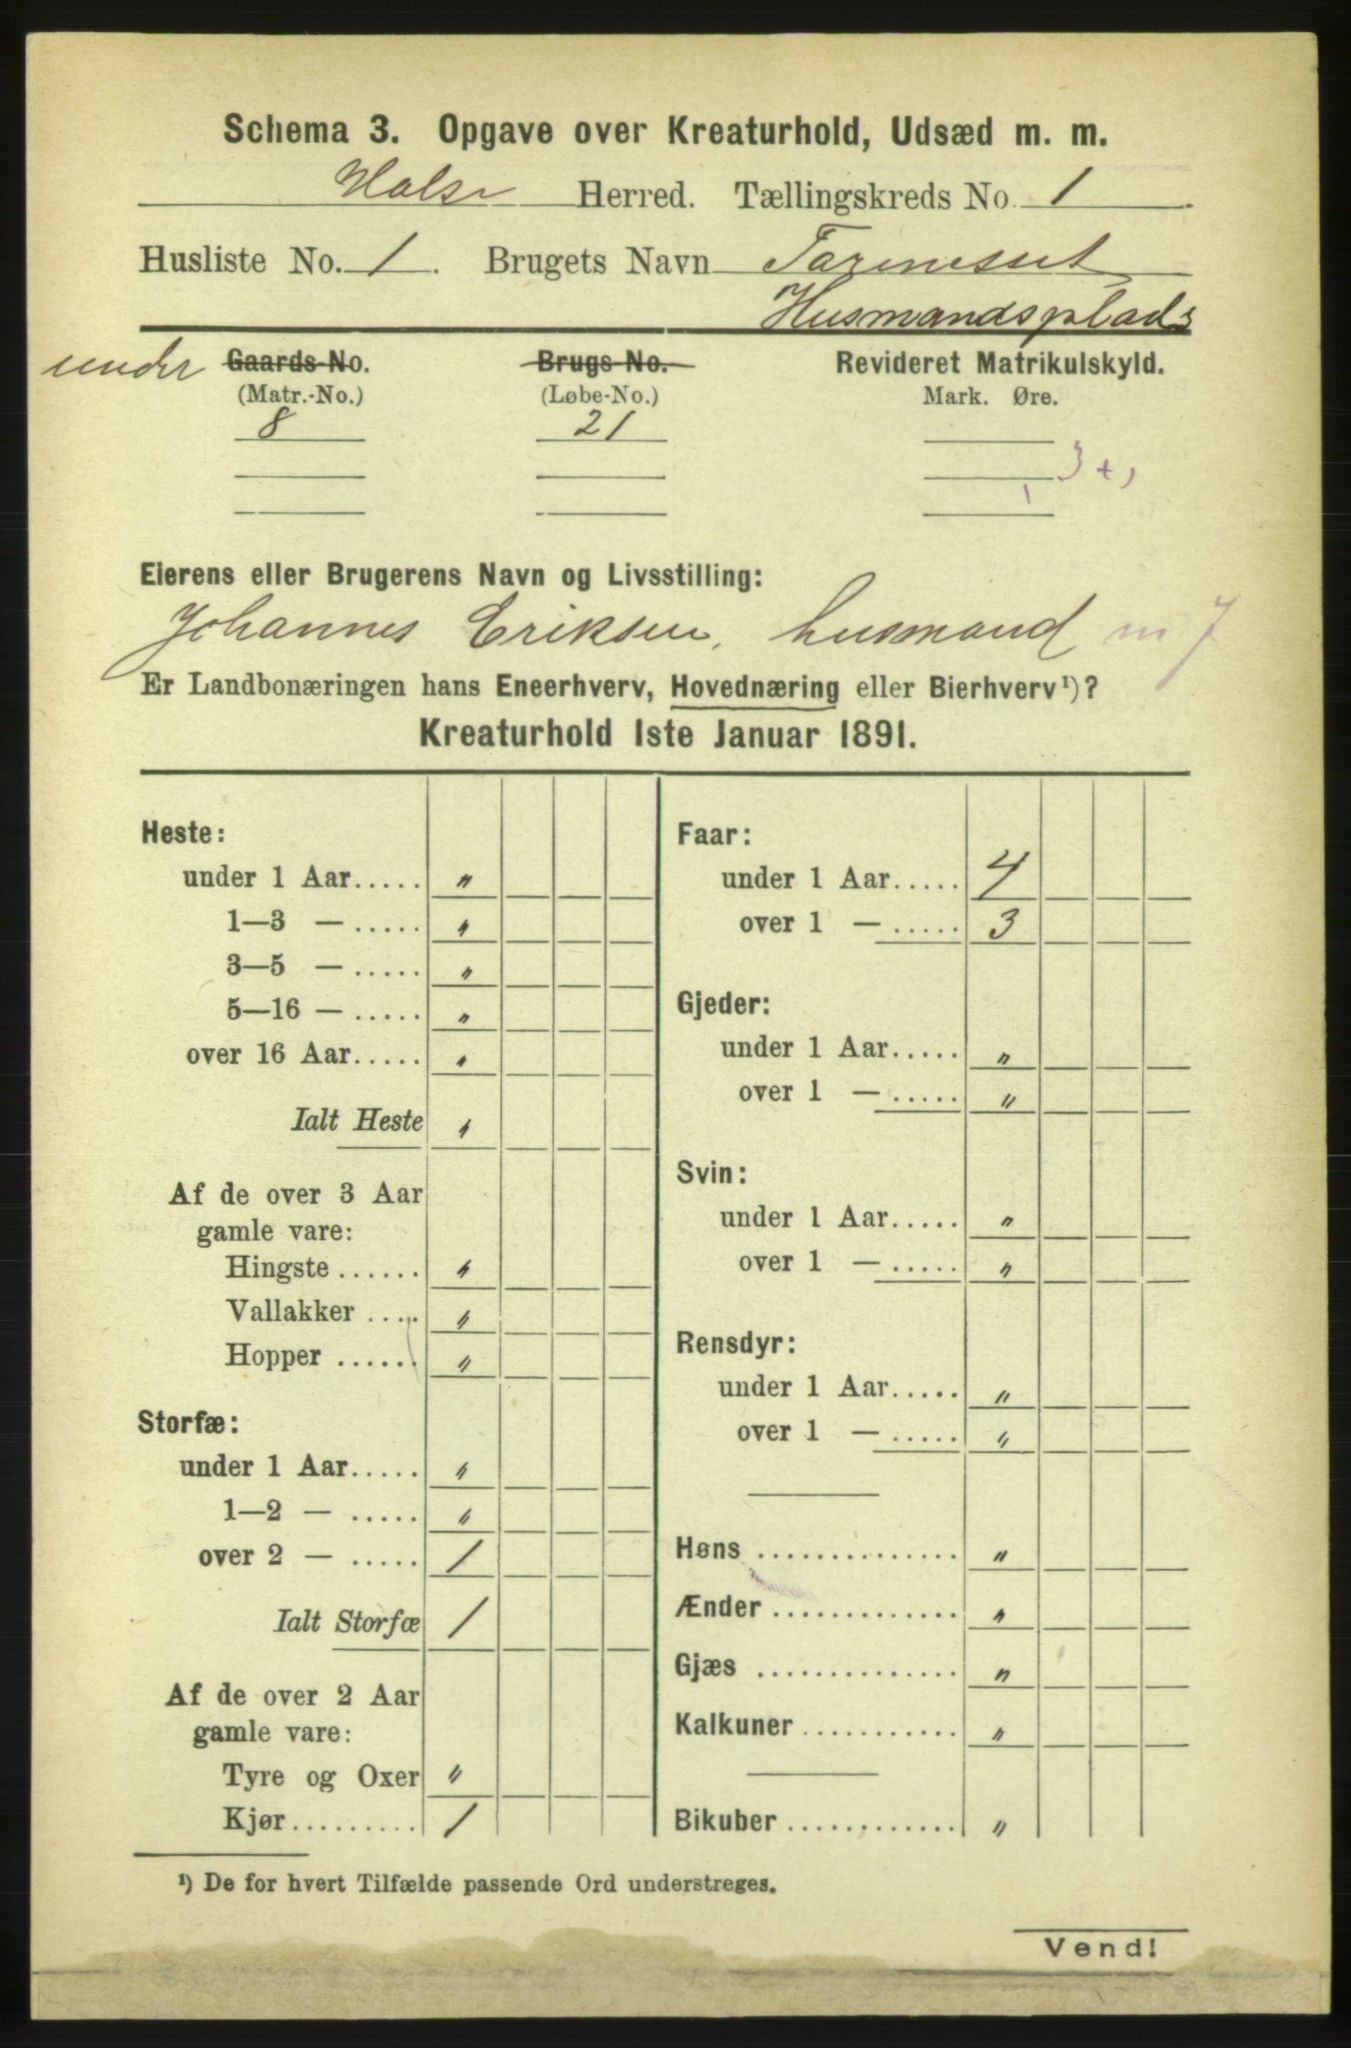 Schema 3. Opgave over Kreaturhold, Udsæd m. m.
Halse Herred. Tællingskreds No. 1.
Husliste No. 1. Brugets Navn
Husmandsplads
under Gaards-No. Brugs-No. Revideret Matrikulskyld.
(Matr.-No.) (Løbe-No.) Mark. Øre.
8 21
3+1
Eierens eller Brugerens Navn og Livsstilling:
Johannes Eriksen, husmand m 7
Er Landbonæringen hans Eneerhverv, Hovednæring eller Bierhverv¹)?
Kreaturhold 1ste Januar 1891.
Heste:
under 1 Aar..... "
1—3 — ..... "
3—5 — ..... "
5—16 — ..... "
over 16 Aar..... "
Ialt Heste "
Af de over 3 Aar
gamle vare:
Hingste ...... "
Vallakker .... "
Hopper ...... "
Storfæ:
under 1 Aar..... "
1—2 — ..... "
over 2 — ..... 1
Ialt Storfæ 1
Af de over 2 Aar
gamle vare:
Tyre og Oxer "
Kjør......... 1
Faar:
under 1 Aar..... 4
over 1 — ..... 3
Gjeder:
under 1 Aar..... "
over 1 — ..... "
Svin:
under 1 Aar..... "
over 1 — ..... "
Rensdyr:
under 1 Aar..... "
over 1 — ..... "
Høns .............. "
Ænder ............. "
Gjæs .............. "
Kalkuner ........... "
Bikuber ............ "
¹) De for hvert Tilfælde passende Ord understreges.
Vend!